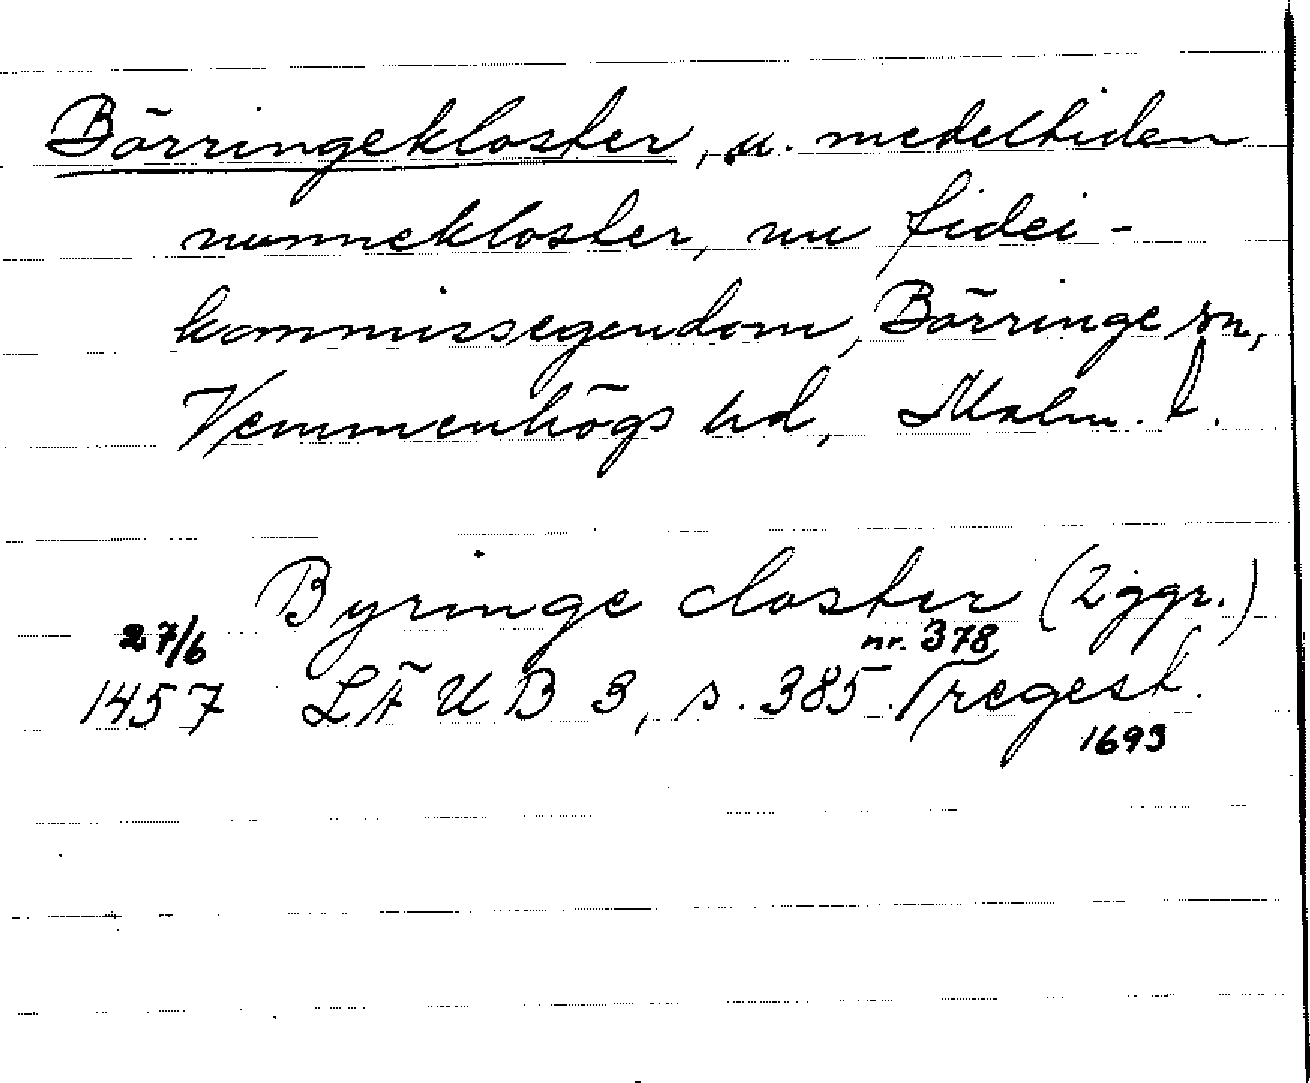 Börringekloster, u. medeltiden
nunnekloster, nu fidei-
kommissegendom, Börringe sn,
Vemmenhögs hd, Malm. l.
Byringe closter (2 ggr.)
27/6 nr. 378
1457 LÄUB 3, s. 385. (regest.
1693